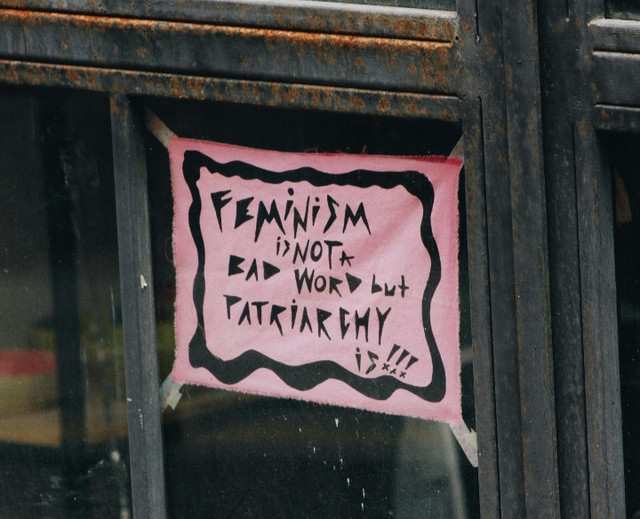 FEMINiSM
is NOT A
BAD WORD but
PATRiARCHY
is!!!